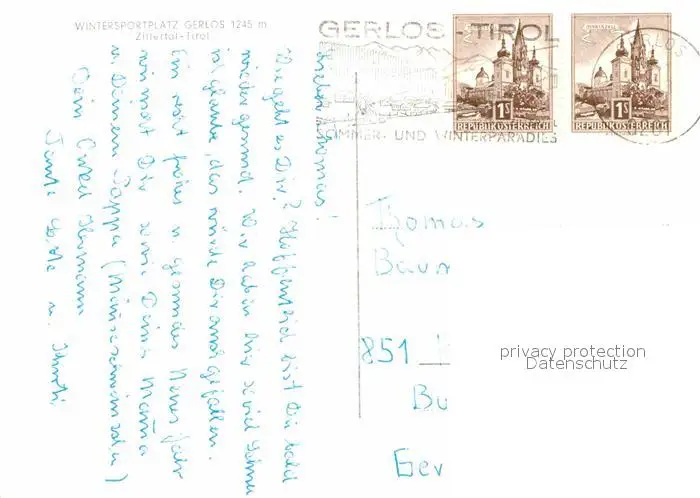 WINTERSPORTPLATZ GERLOS 1245 m
Zillertal-Tirol
GERLOS - TIROL
SOMMER- UND WINTERPARADIES
1S
REPUBLIK ÖSTERREICH
1S
REPUBLIK ÖSTERREICH
GERLOS
Lieber Thomas!
Wie geht es Dir? Hoffentlich bist Du bald
wieder gesund. Wir haben hier so viel Schnee
ich glaube, das würde Dir auch gefallen.
Ein recht frohes u. gesundes Neues Jahr
wünscht Dir sowie Deiner Mama
u. Deinem Pappa
Dein Onkel Hermann
Tante u.
Thomas
Baur
851
Bu
Gev
privacy protection
Datenschutz